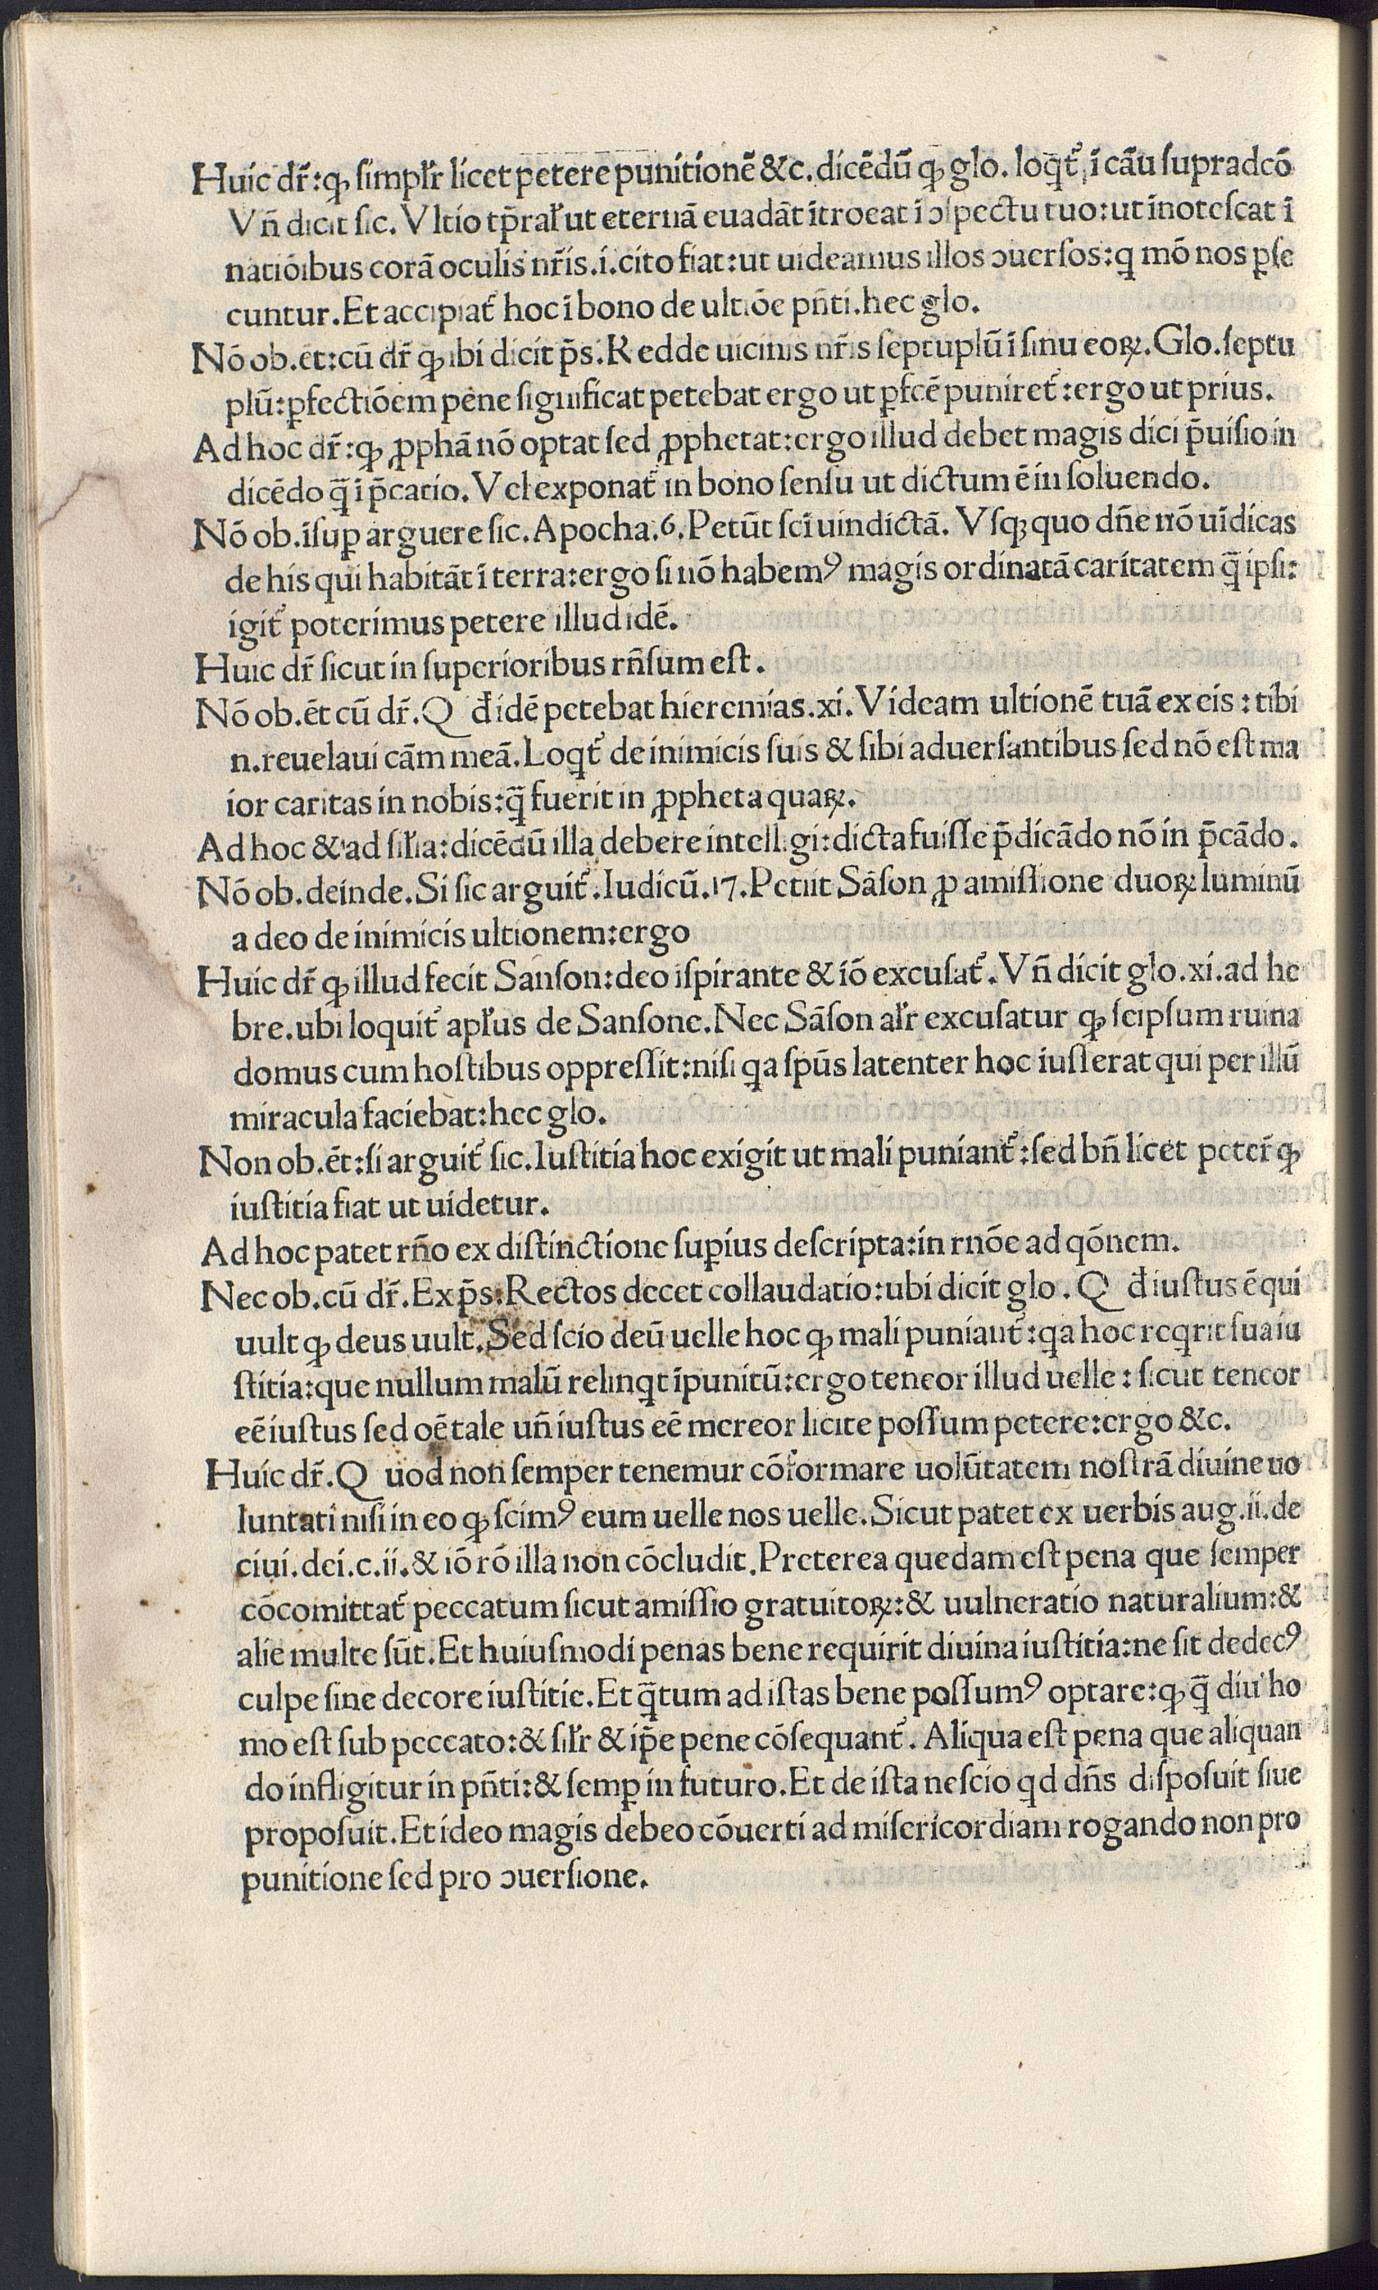 Huic dr̃:ꝙ simplr̃ licet petere punitionē &c. dicēdū ꝙ glo. loq̃t᷑ ī cāu supradcō
Vñ dicit sic. Vltio tp̃ral̃ ut eternā euadāt ītroeat ī ↄspectu tuo:ut īnotescat ī
natiōibus corā oculis nr̃is.i.cito fiat:ut uideamus illos ↄuersos:q mō nos ꝑse
cuntur. Et accipiat᷑ hoc ī bono de ultiōe pñti.hec glo.
Nō ob.et:cū dr̃ ꝙ ibi dicit p̄s. Redde uicinis nr̃is septuplū ī sinu eoꝝ. Glo.septu
plū:ꝑfectiōem pene significat petebat ergo ut ꝑfcē puniret᷑:ergo ut prius.
Ad hoc dr̃:ꝙ ꝓphā nō optat sed ꝓphetat:ergo illud debet magis dici p̄uisio in
dicēdo q̄ ī p̄catio. Vel exponat᷑ in bono sensu ut dictum ē in soluendo.
Nō ob.īsuꝑ arguere sic. Apocha.6. Petūt sci uindictā. Vsqꝫ quo dñe nō uīdicas
de his qui habitāt ī terra:ergo si nō habemꝰ magis ordinatā caritatem q̄ ipsi:
igit᷑ poterimus petere illud idē.
Huic dr̃ sicut in superioribus rñsum est.
Nō ob.ēt cū dr̃. Q đ idē petebat hieremias.xi. Videam ultionē tuā ex eis: tibi
n.reuelaui cām meā. Loq̃t᷑ de inimicis suis & sibi aduersantibus sed nō est ma
ior caritas in nobis:q̄ fuerit in ꝓpheta quaꝝ.
Ad hoc & ad sil̃ia:dicēdū illa debere intelligi:dicta fuisse p̄dicādo nō in p̄cādo.
Nō ob.deinde. Si sic arguit᷑. Iudicū.17. Petiit Sāson ꝓ amissione duoꝝ luminū
a deo de inimicis ultionem:ergo
Huic dr̃ ꝙ illud fecit Sanson:deo ispirante & iō excusat᷑. Vñ dicit glo.xi.ad he
bre.ubi loquit᷑ apl̃us de Sansone. Nec Sāson al̃r excusatur ꝙ seipsum ruina
domus cum hostibus oppressit:nisi qa spūs latenter hoc iusserat qui per illū
miracula faciebat:hec glo.
Non ob.ēt:si arguit᷑ sic. Iustitia hoc exigit ut mali puniant᷑:sed bñ licet peter̃ ꝙ
iustitia fiat ut uidetur.
Ad hoc patet rño ex distinctione suꝑius descripta:in rnōe ad qōnem.
Nec ob.cū dr̃. Ex p̄s. Rectos decet collaudatio:ubi dicit glo. Q đ iustus ē qui
uult ꝙ deus uult. Sed scio deū uelle hoc ꝙ mali puniant᷑:qa hoc reqrit sua iu
stitia:que nullum malū relinqt īpunitū:ergo teneor illud uelle: sicut teneor
eē iustus sed oē tale uñ iustus eē mereor licite possum petere:ergo &c.
Huic dr̃. Q uod non semper tenemur cōformare uolūtatem nostrā diuine uo
luntati nisi in eo ꝙ scimꝰ eum uelle nos uelle. Sicut patet ex uerbis aug.ii.de
ciui.dei.c.ii.& iō rō illa non cōcludit. Preterea quedam est pena que semper
cōcomittat᷑ peccatum sicut amissio gratuitoꝝ:& uulneratio naturalium:&
alie multe sūt. Et huiusmodi penas bene requirit diuina iustitia:ne sit dedecꝰ
culpe sine decore iustitie. Et q̄tum ad istas bene possumꝰ optare:ꝙ q̄ diu ho
mo est sub peccato:& sil̃r & ip̄e pene cōsequant᷑. Aliqua est pena que aliquan
do infligitur in pñti:& semꝑ in futuro. Et de ista nescio qd dñs disposuit siue
proposuit. Et ideo magis debeo cōuerti ad misericordiam rogando non pro
punitione sed pro ↄuersione.